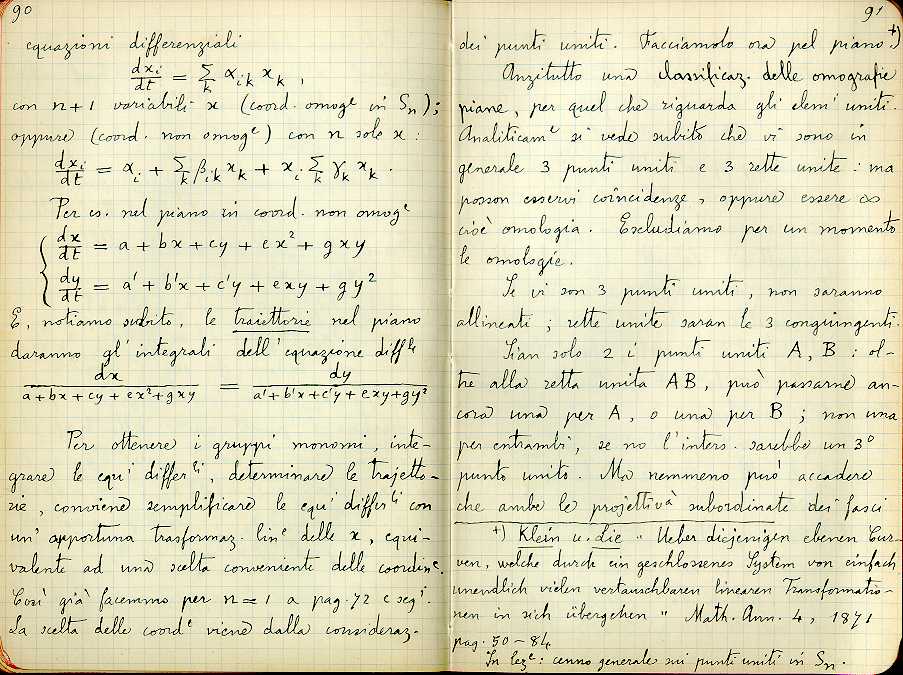 90
equazioni differenziali
dx_i/dt = Σ_k α_ik x_k ,
con n+1 variabili x (coord. omog^e in S_n);
oppure (coord. non omog^e) con n sole x:
dx_i/dt = α_i + Σ_k β_ik x_k + x_i Σ_k γ_k x_k .
Per es. nel piano in coord. non omog^e
dx/dt = a + bx + cy + ex² + gxy
dy/dt = a' + b'x + c'y + exy + gy²
E, notiamo subito, le traiettorie nel piano
daranno gl'integrali dell'equazione diff^le
dx/(a+bx+cy+ex²+gxy) = dy/(a'+b'x+c'y+exy+gy²)
Per ottenere i gruppi monomi, inte-
grare le equ^i differ^li, determinare le trajetto-
rie, conviene semplificare le equ^i differ^li con
un'opportuna trasformaz. lin^e delle x, equi-
valente ad una scelta conveniente delle coordin^e.
Così già facemmo per n=1 a pag. 72 e seg^i.
La scelta delle coord^e viene dalla consideraz.
91
dei punti uniti. Facciamolo ora pel piano.+)
Anzitutto una classificaz. delle omografie
piane, per quel che riguarda gli elem^i uniti.
Analiticam^e si vede subito che vi sono in
generale 3 punti uniti e 3 rette unite: ma
posson esservi coincidenze, oppure essere ∞
cioè omologia. Escludiamo per un momento
le omologie.
Se vi son 3 punti uniti, non saranno
allineati; rette unite saran le 3 congiungenti.
Sian solo 2 i punti uniti A, B: ol-
tre alla retta unita AB, può passarne an-
cora una per A, o una per B; non una
per entrambi, se no l'inters. sarebbe un 3°
punto unito. Ma nemmeno può accadere
che ambe le projettiv^à subordinate dei fasci
+) Klein u. Lie „Ueber diejenigen ebenen Cur-
ven, welche durch ein geschlossenes System von einfach
unendlich vielen vertauschbaren linearen Transformatio-
nen in sich übergehen" Math. Ann. 4, 1871
pag. 50–84
In lez^e: cenno generale sui punti uniti in S_n.